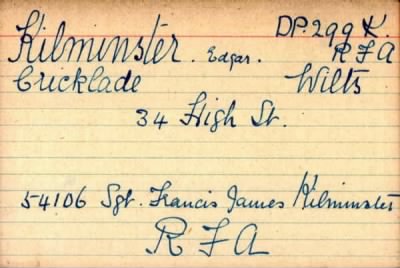 DP.299 K.
Kilminster. Edgar. RFA
Cricklade Wilts
34 High St.
54106 Sgt. Francis James Kilminster
RFA